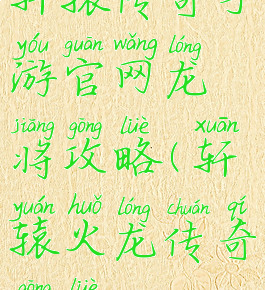 轩辕传奇手
yóu guān wǎng lóng
游官网龙
jiāng gōng lüè xuān
将攻略(轩
yuán huǒ lóng chuán qí
辕火龙传奇
gōng lüè